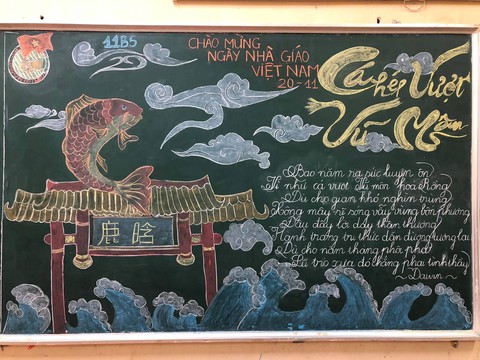 11B5
CHÀO MỪNG
NGÀY NHÀ GIÁO
VIỆT NAM
20-11
Cá chép Vượt
Vũ Môn
鹿晗
Bao năm ra sức luyện ôn
Ví như cá vượt Vũ môn hoá rồng
Dù cho gian khó nghìn trùng
Sóng mây vẫy vùng bốn phương
lời dạy thân thương
Hành trang tri thức dẫn đường tương lai
Dù cho năm tháng phôi phai
trò xưa đó chẳng phai tình thầy